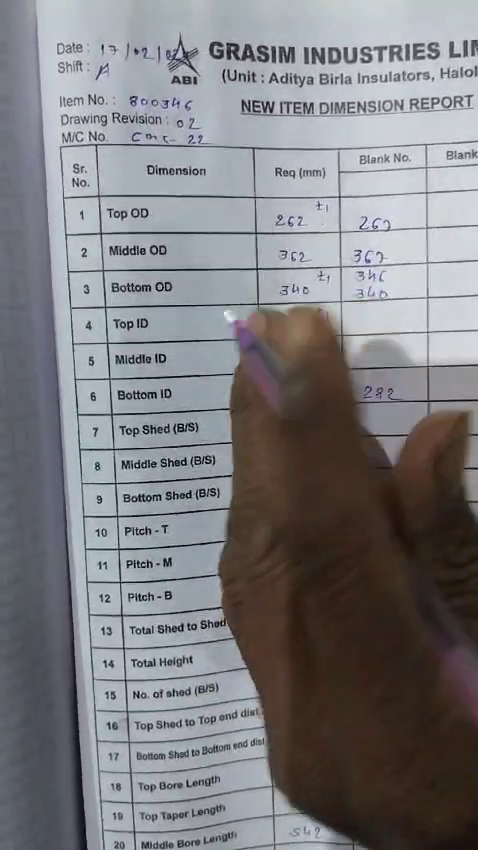 Date : 17/02/
Shift : A
ABI
GRASIM INDUSTRIES LI
(Unit : Aditya Birla Insulators, Halol
Item No. : 800346
NEW ITEM DIMENSION REPORT
Drawing Revision : 02
M/C No. CNC-22
Sr. No. Dimension Req (mm) Blank No. Blank
1 Top OD 262 ±1 262
2 Middle OD 362 362
3 Bottom OD 340 ±1 346 340
4 Top ID
5 Middle ID
6 Bottom ID 282
7 Top Shed (B/S)
8 Middle Shed (B/S)
9 Bottom Shed (B/S)
10 Pitch - T
11 Pitch - M
12 Pitch - B
13 Total Shed to Shed
14 Total Height
15 No. of shed (B/S)
16 Top Shed to Top end dist.
17 Bottom Shed to Bottom end dist
18 Top Bore Length
19 Top Taper Length
20 Middle Bore Length 542